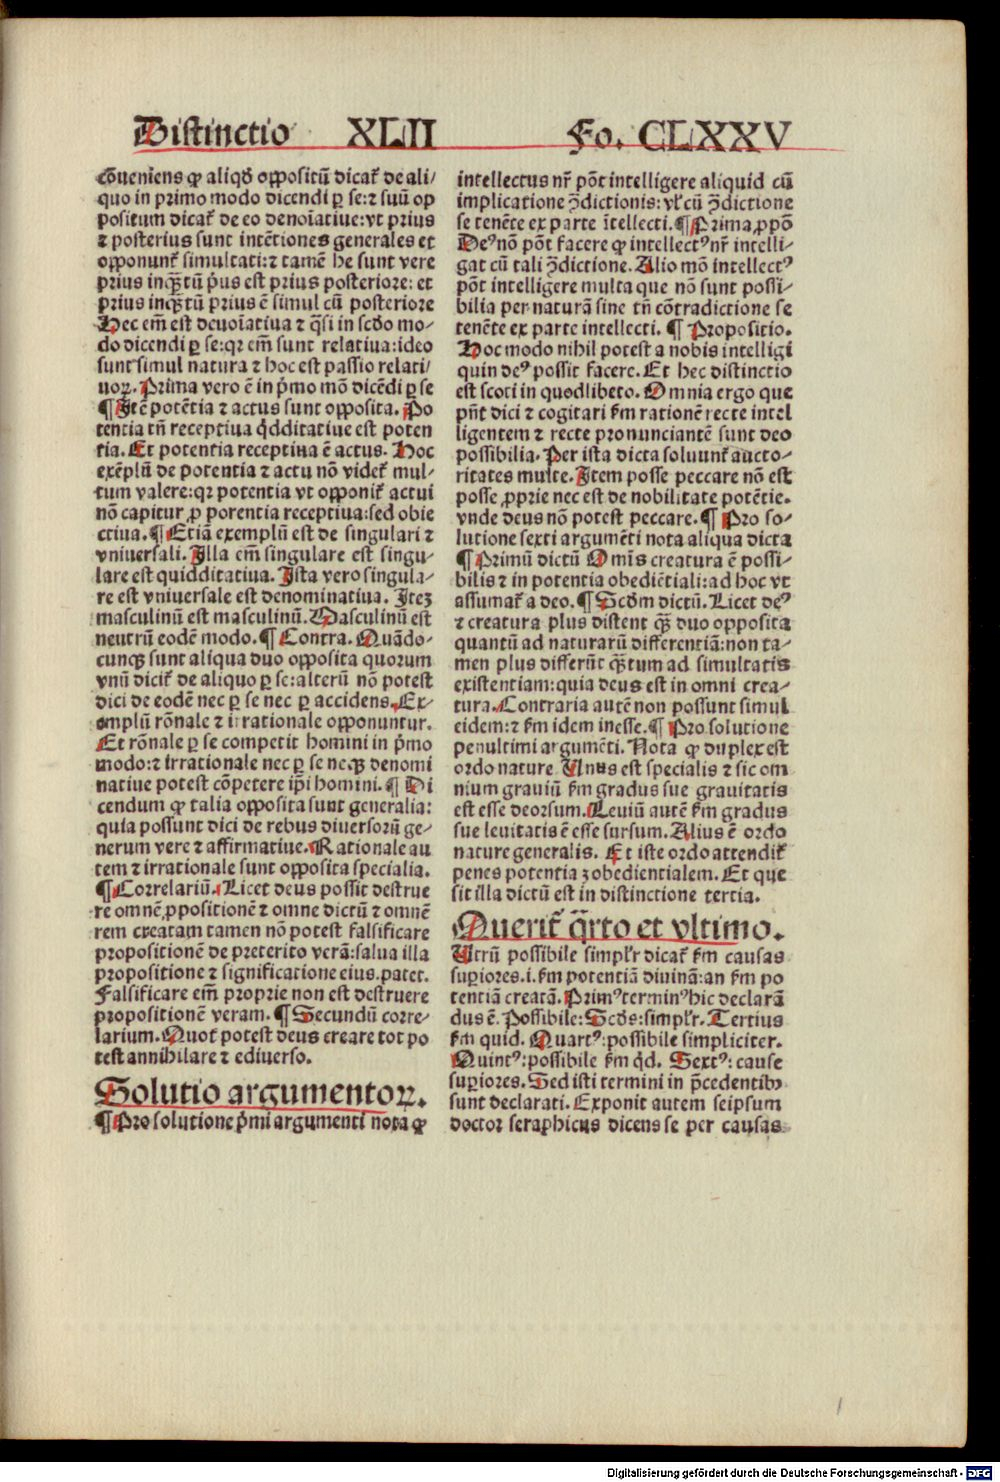 Distinctio XLII Fo. CLXXV
Cōueniēs ꝙ aliqđ oppositū dicat̄ de ali/
quo in primo modo dicendi ꝑ se: ⁊ suū op
positum dicat̄ de eo denoīatiue: vt prius
⁊ posterius sunt intētiones generales et
opponunt̄ simultati: ⁊ tamē he sunt vere
prius inqͣꝫtū p̄us est prius posteriore: et
prius inqͣꝫtū prius ē simul cū posteriore
Hec em̄ est denoīatiua ⁊ qͣsi in scđo mo/
do dicendi ꝑ se: qꝛ em̄ sunt relatiua: ideo
sunt simul natura ⁊ hoc est passio relati/
uoꝝ. Prima vero ē in p̄mo mō dicēdi ꝑ se
¶ Itē potētia ⁊ actus sunt opposita. Po
tentia tn̄ receptiua qͥdditatiue est poten
tia. Et potentia receptiua ē actus. Hoc
exēplū de potentia ⁊ actu nō videt̄ mul/
tum valere: qꝛ potentia vt opponit̄ actui
nō capitur ꝓ porentia receptiua: sed obie
ctiua. ¶ Etiā exemplū est de singulari ⁊
vniuersali. Illa em̄ singulare est singu/
lare est quidditatiua. Ista vero singula/
re est vniuersale est denominatiua. Iteꝫ
masculinū est masculinū. Masculinū est
neutrū eodē modo. ¶ Contra. Quādo/
cunqꝫ sunt aliqua duo opposita quorum
vnū dicit̄ de aliquo ꝑ se: alterū nō potest
dici de eodē nec ꝑ se nec ꝑ accidens. Ex/
emplū rōnale ⁊ irrationale opponuntur.
Et rōnale ꝑ se competit homini in p̄mo
modo: ⁊ irrationale nec ꝑ se neqꝫ denomi
natiue potest cōpetere ip̄i homini. ¶ Di
cendum ꝙ talia opposita sunt generalia:
quia possunt dici de rebus diuersorū ge/
nerum vere ⁊ affirmatiue. Rationale au
tem ⁊ irrationale sunt opposita specialia.
¶ Correlariū. Licet deus possit destrue
re omnē ꝓpositionē ⁊ omne dictū ⁊ omnē
rem creatam tamen nō potest falsificare
propositionē de preterito verā: salua illa
propositione ⁊ significatione eius. patet.
Falsificare em̄ proprie non est destruere
propositionē veram. ¶ Secundū corre/
larium. Quot potest deus creare tot po
test annihilare ⁊ ediuerso.
Solutio argumentoꝝ.
¶ Pro solutione p̄mi argumenti nota ꝙ
intellectus nr̄ pōt intelligere aliquid cū
implicatione ꝯ̄dictionis: vl̓ cū ꝯ̄dictione
se tenēte ex parte ītellecti. ¶ Prima ꝓpō
Deꝰ nō pōt facere ꝙ intellectꝰ nr̄ intelli/
gat cū tali ꝯ̄dictione. Alio mō intellectꝰ
pōt intelligere multa que nō sunt possi/
bilia per naturā sine tn̄ cōtradictione se
tenēte ex parte intellecti. ¶ Propositio.
Hoc modo nihil potest a nobis intelligi
quin deꝰ possit facere. Et hec distinctio
est scoti in quodlibeto. Omnia ergo que
pn̄t dici ⁊ cogitari km̄ rationē recte intel
ligentem ⁊ recte pronunciantē sunt deo
possibilia. Per ista dicta soluunt̄ aucto/
ritates multe. Item posse peccare nō est
posse ꝓprie nec est de nobilitate potētie.
vnde deus nō potest peccare. ¶ Pro so/
lutione sexti argumēti nota aliqua dicta
¶ Primū dictū Omīs creatura ē possi/
bilis ⁊ in potentia obediētiali: ad hoc vt
assumat̄ a deo. ¶ Scđm dictū. Licet deꝰ
⁊ creatura plus distent qͣꝫ duo opposita
quantū ad naturarū differentiā: non ta/
men plus differūt qͣꝫtum ad simultatis
existentiam: quia deus est in omni crea/
tura. Contraria autē non possunt simul
eidem: ⁊ km̄ idem inesse. ¶ Pro solutione
penultimi argumēti. Nota ꝙ duplex est
ordo nature. Vnus est specialis ⁊ sic om
nium grauiū km̄ gradus sue grauitatis
est esse deorsum. Leuiū autē km̄ gradus
sue leuitatis ē esse sursum. Alius ē ordo
nature generalis. Et iste ordo attendit̄
penes potentiaꝫ obedientialem. Et que
sit illa dictū est in distinctione tertia.
Querit̄ qͣrto et vltimo.
Vtrū possibile simpl̓r dicat̄ km̄ causas
suꝑiores .i. km̄ potentiā diuinā: an km̄ po
tentiā creatā. Primꝰ terminꝰ hic declarā
dus ē. Possibile: Scđs: simpl̓r. Tertius
km̄ quid. Quartꝰ: possibile simpliciter.
Quintꝰ: possibile km̄ qd. Sextꝰ: cause
suꝑiores. Sed isti termini in p̄cedentibꝫ
sunt declarati. Exponit autem seipsum
doctor seraphicus dicens se per causas
Digitalisierung gefördert durch die Deutsche Forschungsgemeinschaft - DFG